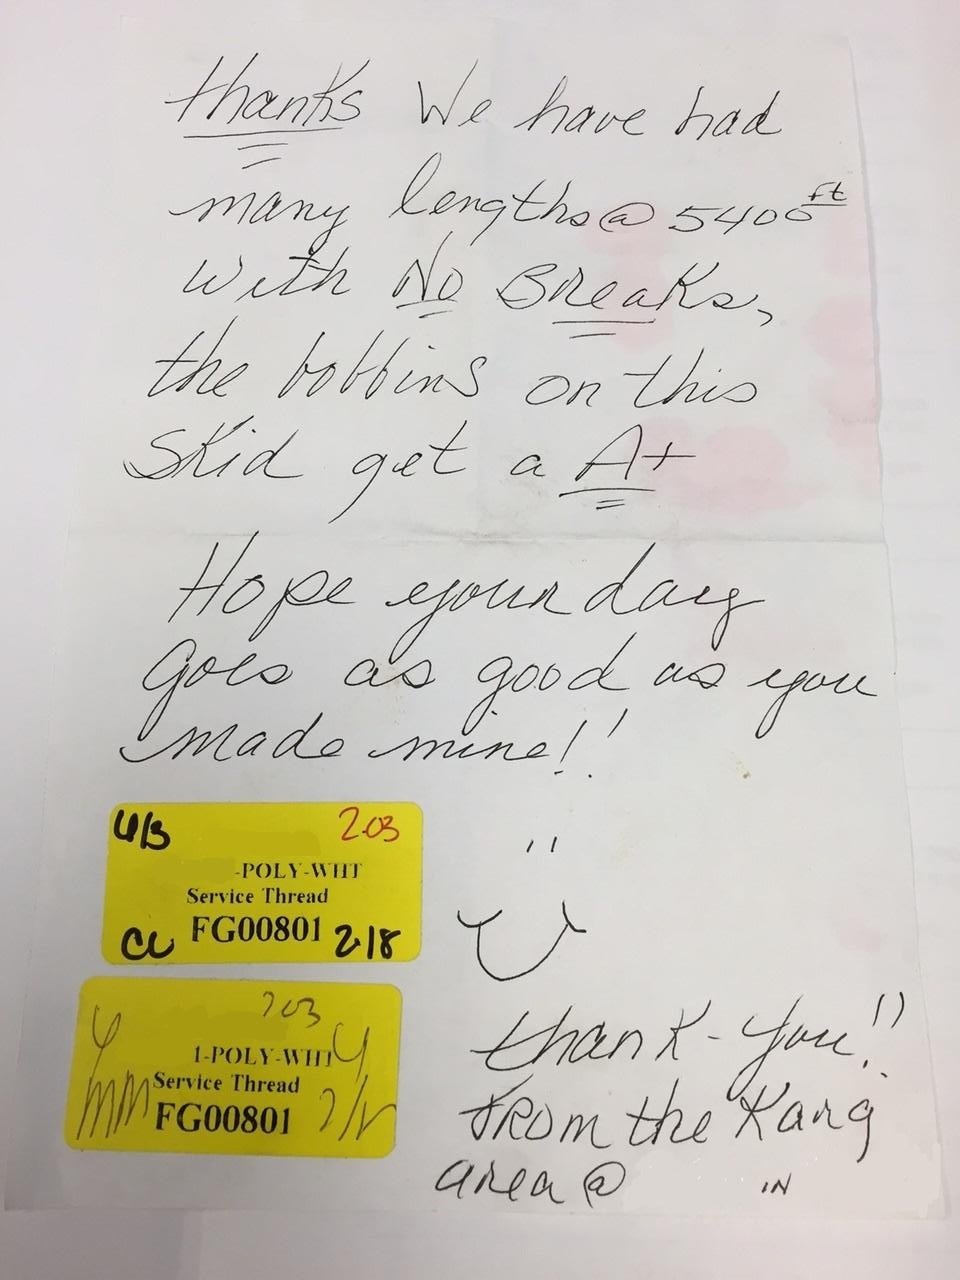 thanks We have had
many lengths @ 5400 ft
with No Breaks,
the bobbins on this
Skid get a A+
Hope your day
Goes as good as you
made mine!!
4/3 203
-POLY-WHT
Service Thread
CC FG00801 2/8
203
1-POLY-WHT 4
Service Thread
MM FG00801
thank-you!!
From the Karg
area @ IN